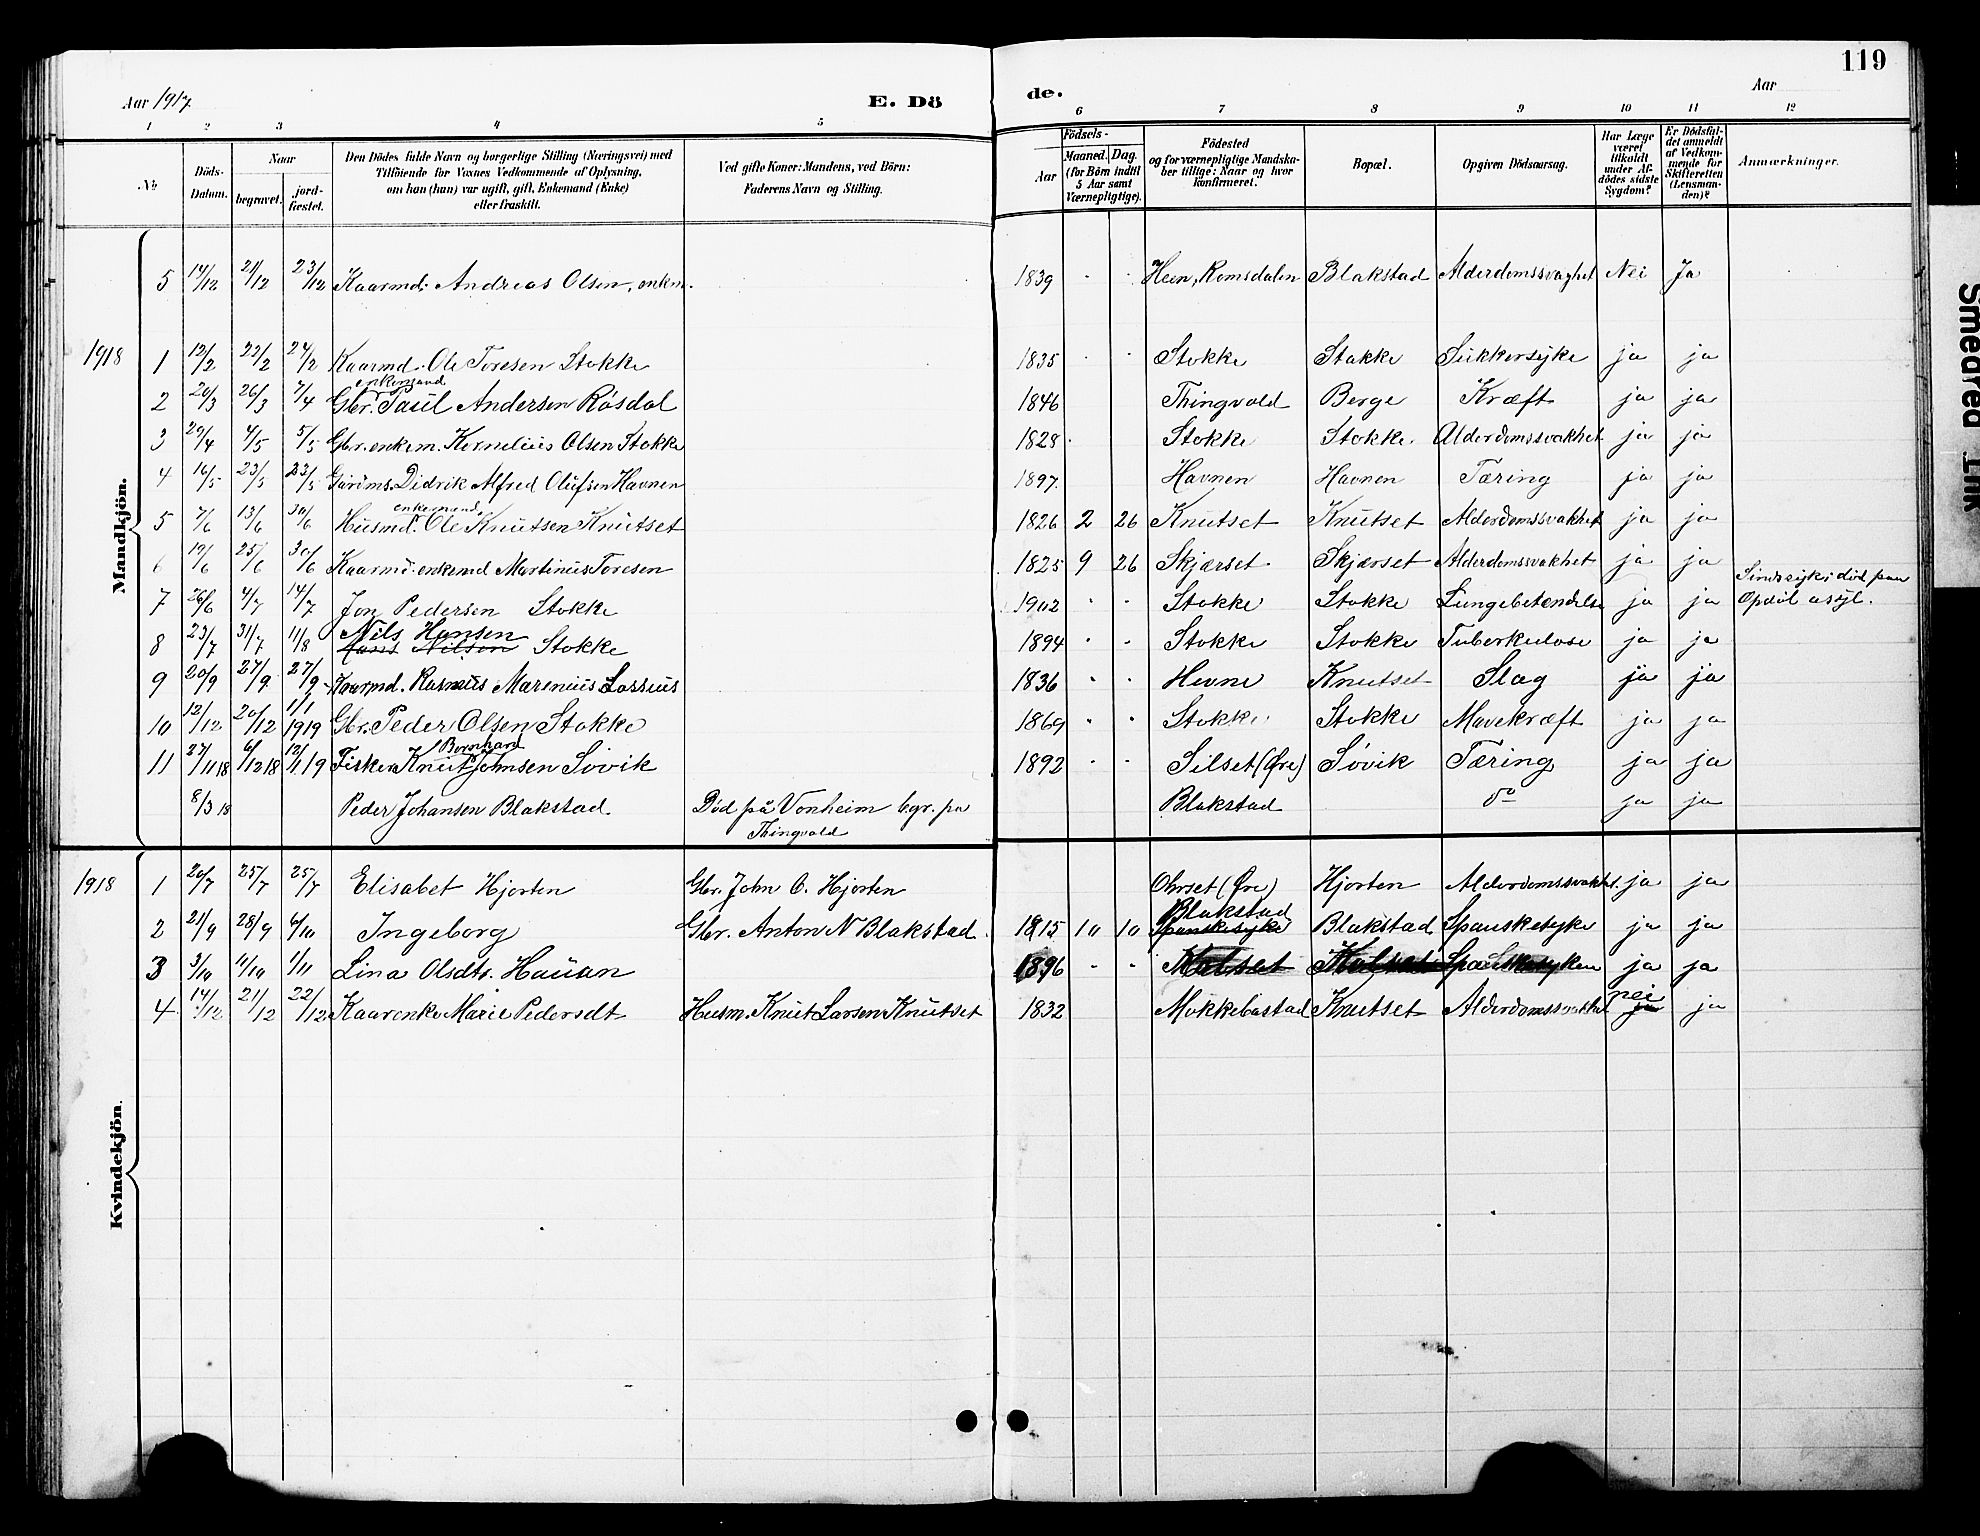 119
Aar 1917.
E. Dö
de.
Aar
1 2 3 4 5 6 7 8 9 10 11 12
No
Döds-Datum.
Naar
begravet.
jord-fæstet.
Den Dödes fulde Navn og borgerlige Stilling (Næringsvei) med
Tilföiende for Voxnes Vedkommende af Oplysning,
om han (hun) var ugift, gift, Enkemand (Enke)
eller fraskilt.
Ved gifte Koner: Mandens, ved Börn:
Faderens Navn og Stilling.
Födsels-
Aar
Maaned. Dag.
(for Börn indtil
5 Aar samt
Værnepligtige).
Födested
og for værnepligtige Mandska-
ber tillige: Naar og hvor
konfirmeret.
Bopæl.
Opgiven Dödsaarsag.
Har Læge
været
tilkaldt
under Af-
dödes sidste
Sygdom?
Er Dödsfal-
det anmeldt
af Vedkom-
mende for
Skifteretten
(Lensman-
den)?
Anmærkninger.
Mandkjön.
5 14/12 21/12 23/12 Kaarmd. Andreas Olsen, enkm. 1839 " " Heen, Romsdalen Blakstad Alderdomssvaghet Nei Ja
1918 1 12/2 22/2 24/2 Kaarmd. Ole Toresen Stokke 1835 " " Stokke Stokke Sukkersyke ja ja
enkemand
2 20/3 26/3 7/4 Gbr. Paul Andersen Rösdal 1846 Thingvold Berge Kræft ja ja
3 29/4 4/5 5/5 Gbr. enkem. Kornelius Olsen Stokke 1828 Stokke Stokke Alderdomssvakhet ja ja
4 16/5 23/5 23/5 Gaardms. Didrik Alfred Olufsen Havnen 1897 Havnen Havnen Tæring ja ja
enkemand
5 7/6 13/6 30/6 Husmd. Ole Knutsen Knutset 1826 2 26 Knutset Knutset Alderdomssvakhet ja ja
6 19/6 25/6 30/6 Kaarmd. enkemd Martinus Toresen 1825 9 26 Skjærset Skjærset Alderdomssvakhet ja ja
7 26/6 4/7 14/7 Jon Pedersen Stokke 1902 " " Stokke Stokke Lungebetændelse ja ja Sindssyk; död paa
Opdöl asyl.
Nils Hansen
8 23/7 31/7 11/8 Hans Nilsen Stokke 1894 " " Stokke Stokke Tuberkulose ja ja
9 20/9 27/9 27/9 Kaarmd. Rasmus Marenius Lossius 1836 " " Hevne Knutset Slag ja ja
10 12/12 20/12 1/1 1919 Gbr. Peder Olsen Stokke 1869 " " Stokke Stokke Mavekræft ja ja
Bernhard
11 27/11 18 6/12 18 12/1 19 Fisker Knut Johnsen Sövik 1892 " " Silset (Øre) Sövik Tæring ja ja
8/3 18 Peder Johansen Blakstad Död på Vonheim begr. pa Blakstad do ja ja
Thingvold
Kvindekjön.
1918 1 20/7 25/7 25/7 Elisabet Hjorten Gbr. John O. Hjorten Ohrset (Øre) Hjorten Alderdomssvakhet. ja ja
Blakstad
2 21/9 28/9 6/10 Ingeborg Gbr. Anton N Blakstad. 1915 10 10 Spanskesyke Blakstad Spanskesyke ja ja
3 3/10 11/10 1/11 Lina Olsdtr. Hauan 1896 " " Spanskesyken ja ja
nei
4 14/12 21/12 22/12 Kaarenke Marie Pedersdt Husm. Knut Larsen Knutset 1832 Mokkelbastad Knutset Alderdomssvakhet ja ja
Smeared Ink